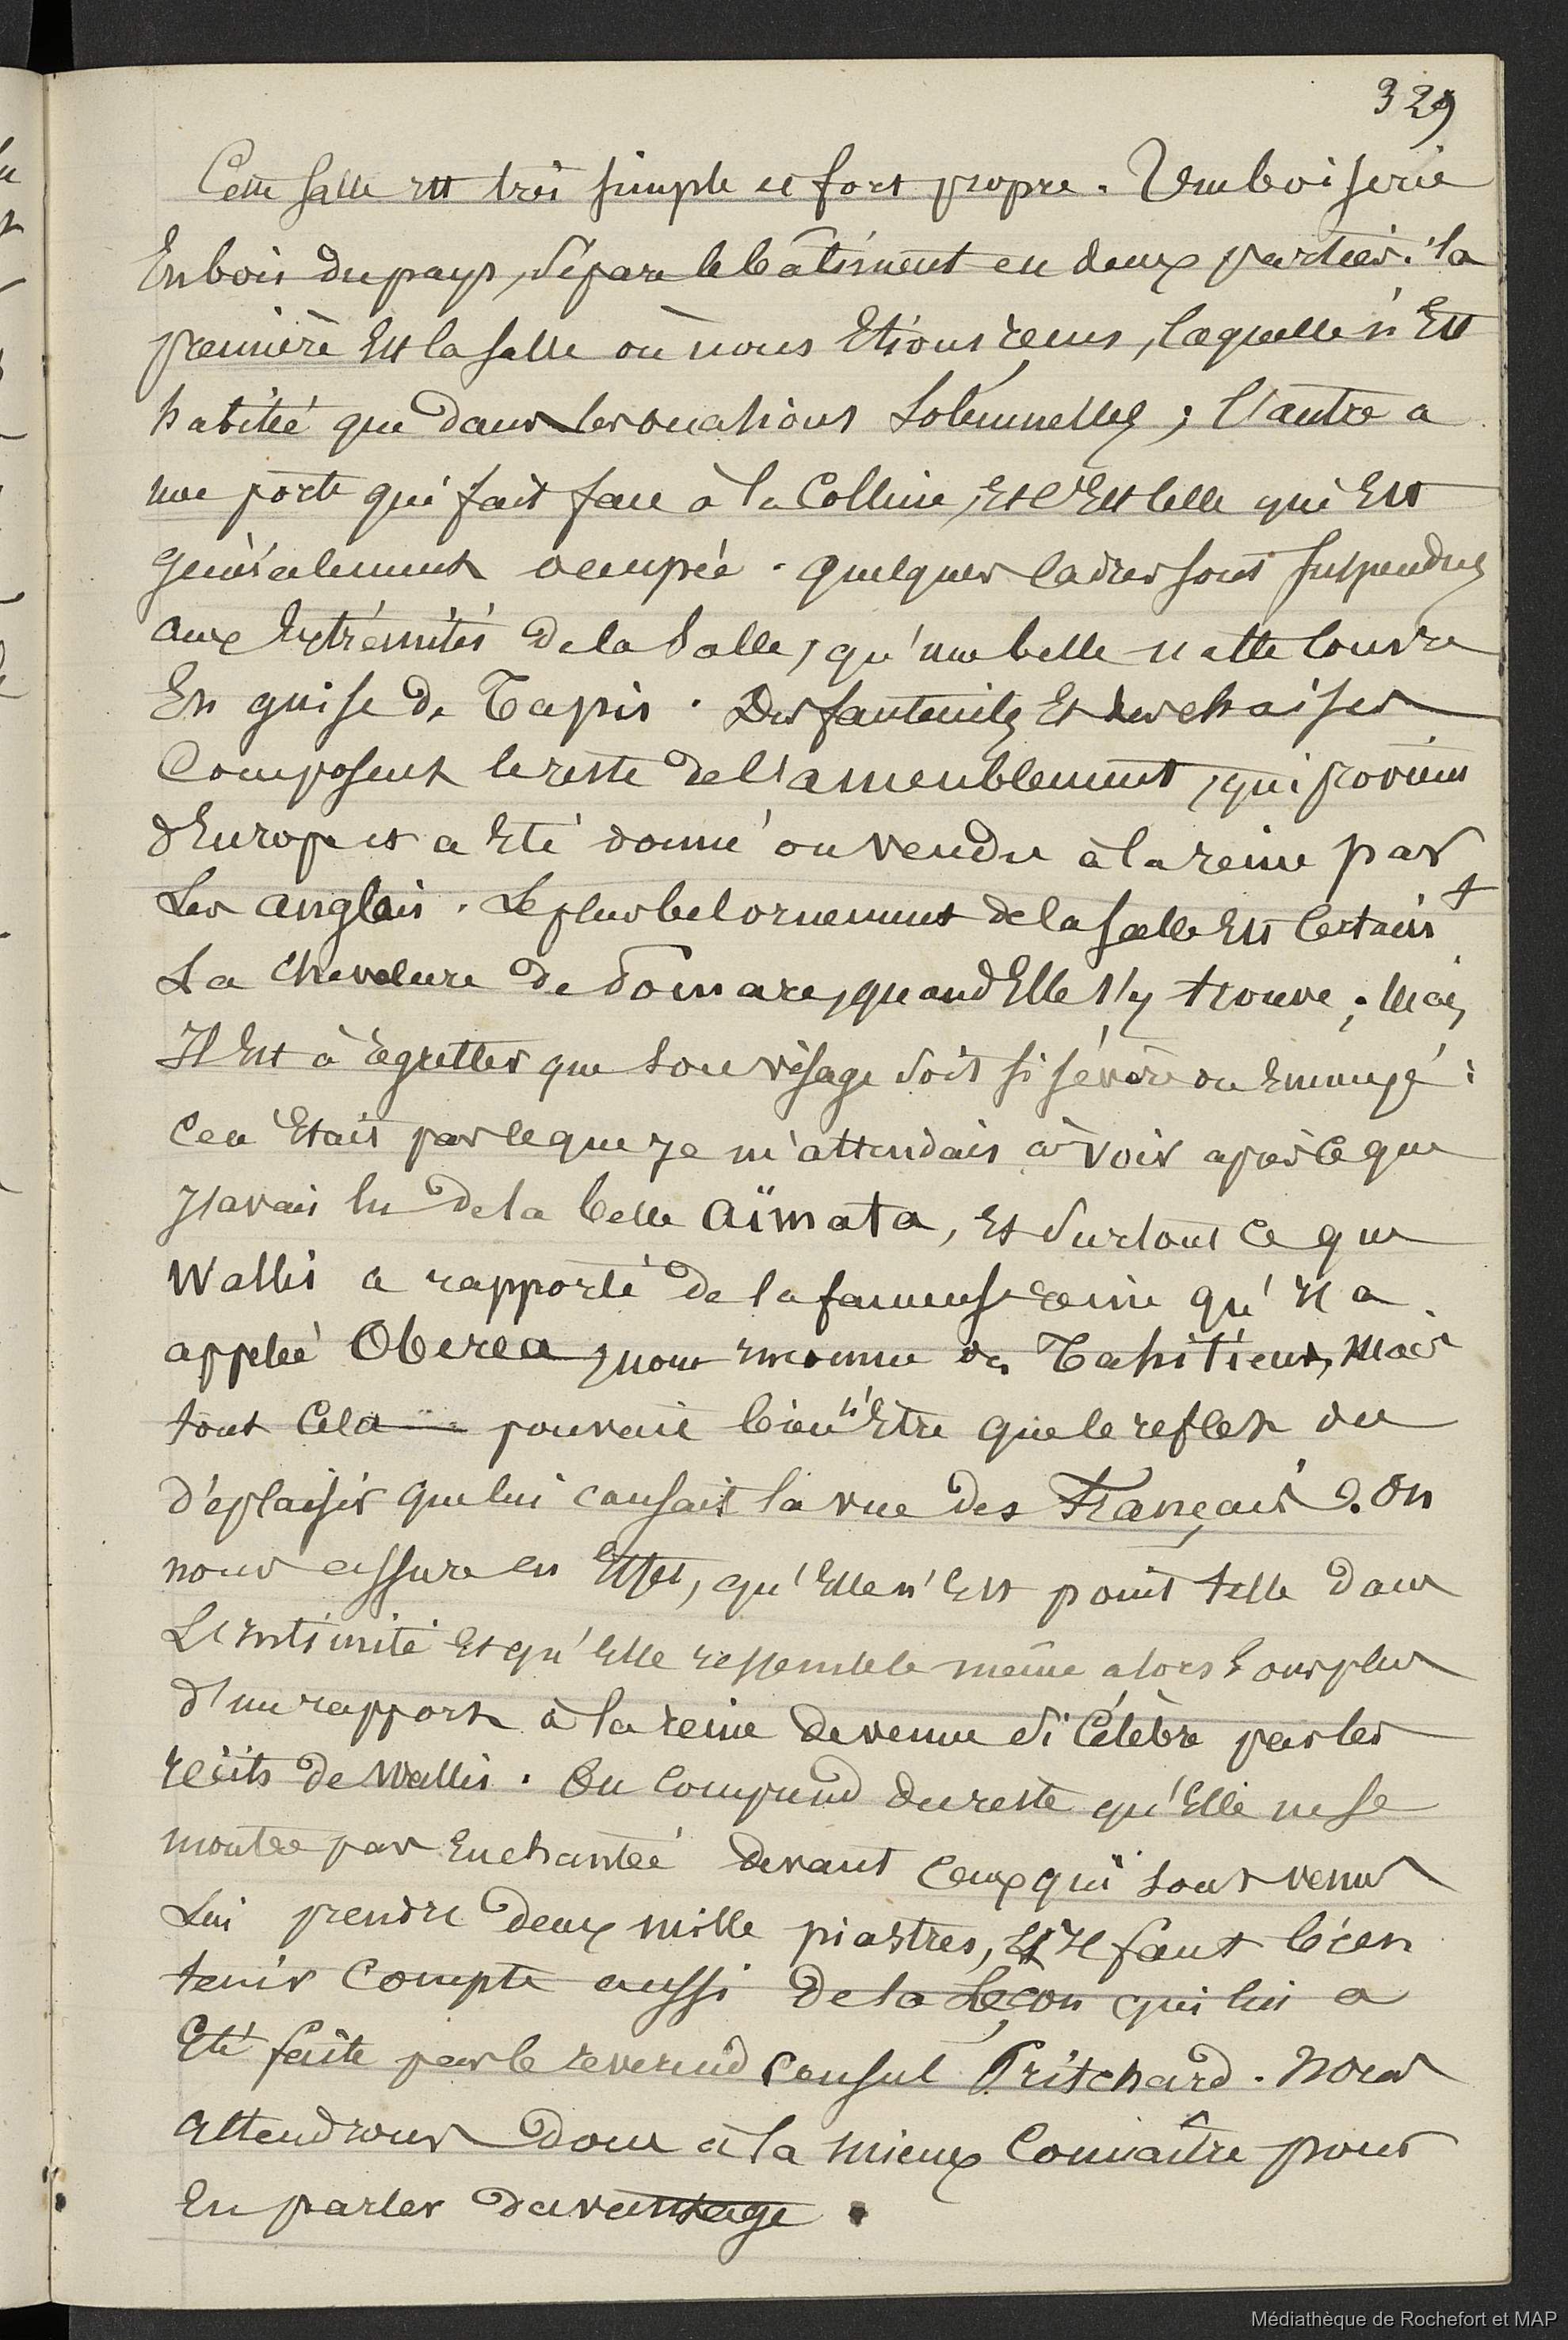 329
Cette salle est très simple et fort propre. Une boiserie
En bois du pays, sépare le bâtiment en deux parties : la
première Est la salle où nous Etions reçus, laquelle n'Est
habitée que dans les occasions Solennelles ; l'autre a
une porte qui fait face à la Colline, Et c'Est celle qui Est
généralement occupée. quelques cadres sont suspendus
aux Extrémités de la Salle, qu'une belle natte couvre
En guise de Tapis. Des fauteuils Et des chaises
Composent le reste de l'ameublement, qui provient
d'Europe et a Eté donné ou vendu à la reine par
Les anglais. Le plus bel ornement de la salle Est Certain t
La chevelure de Pomare, quand Elle s'y trouve ; Mais
Il Est à regretter que Son visage soit si sévère ou Ennuyé :
Ce n'Etait pas ce que je m'attendais à voir après ce que
J'avais lu de la belle Aïmata, Et Surtout ce que
Wallis a rapporté de la fameuse reine qu'Il a
appelée Oberea, nom inconnu des Tahitiens, Mais
tout Cela pouvait bien n'Etre que le reflet du
déplaisir que lui causait la vue des Français ?. On
nous assure en Effet, qu'Elle n'Est point telle dans
L'intimité Et qu'Elle ressemble même alors sous plus
d'un rapport à la reine devenue si Célèbre par les
récits de Wallis. On Comprend du reste qu'Elle ne se
montre pas Enchantée devant Ceux qui sont venus
Lui prendre deux mille piastres, Et Il faut bien
tenir Compte aussi de la Leçon qui lui a
Eté faite par le reverend Consul Pritchard. Nous
Attendrons donc à la mieux Connaître pour
En parler davantage.
Médiathèque de Rochefort et MAP